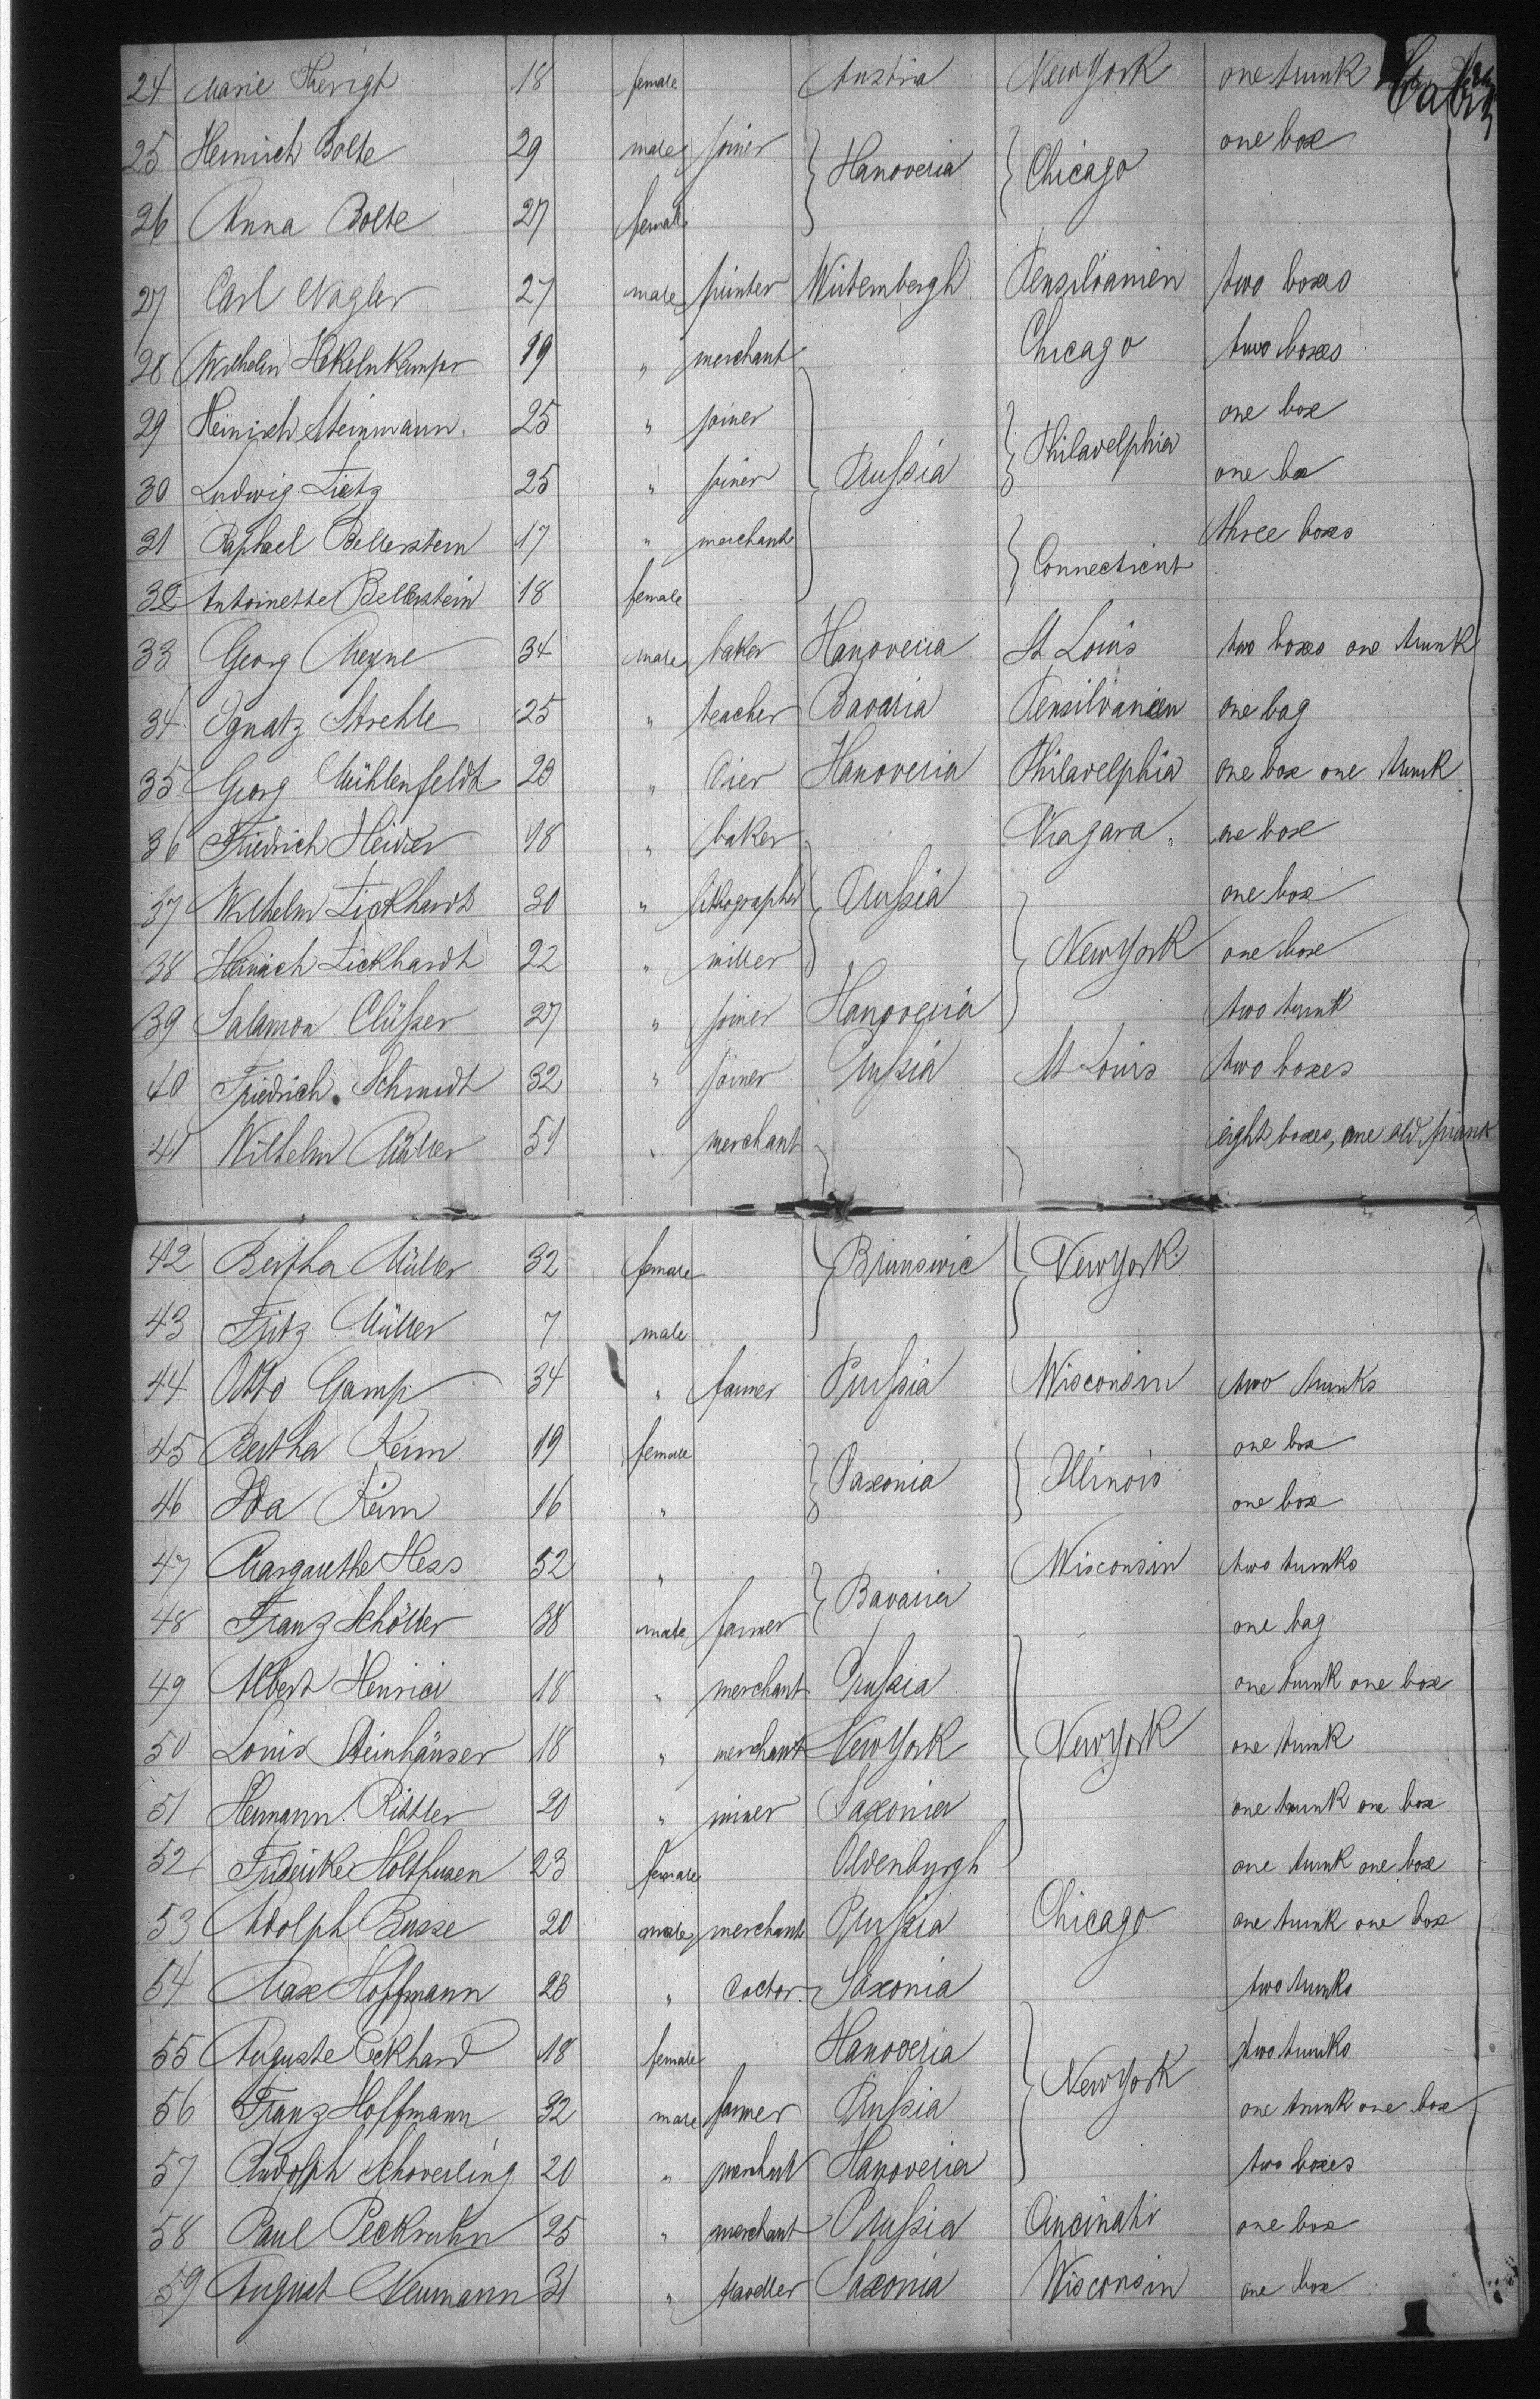 24 Marie 18 female Austria New York one trunk
25 Heinrich Bolte 29 male joiner Hanoveria Chicago one box
26 Anna Bolte 27 female
27 Carl Nagler 27 male printer Wirtembergh Pensilvanien two boxes
28 Wilhelm Hekelnkemper 19 " merchant Chicago two boxes
29 Heinrich Steinmann 25 " joiner Philadelphia one box
30 Ludwig Lietz 25 " joiner Prussia one box
31 Raphael Bellerstein 17 " merchant three boxes
32 Antoinette Bellerstein 18 female Connecticut
33 Georg Meyne 34 male baker Hanoveria St Louis two boxes one trunk
34 Ignatz Strehle 25 " teacher Bavaria Pensilvanien one bag
35 Georg Mühlenfeldt 23 " Hanoveria Philadelphia one box one trunk
36 Friedrich Heider 18 " baker Niagara one box
37 Wilhelm Lickhardt 30 " lithographer Prussia one box
38 Heinrich Lickhardt 22 " miller New York one box
39 Salamon Clüsser 27 " joiner Hanoveria two trunk
40 Friedrich Schmidt 32 " joiner Prussia St Louis two boxes
41 Wilhelm Müller 51 " merchant eight boxes, one old
42 Bertha Müller 32 female Brunswic New York
43 Fritz Müller 7 male
44 Otto Gamp 34 " farmer Prussia Wisconsin two trunks
45 Bertha Keim 19 female one box
46 Ida Keim 16 " Saxonia Illinois one box
47 Margarethe Hess 52 " Wisconsin two trunks
48 Franz Schöller 38 male farmer Bavaria one bag
49 Albert Henrici 18 " merchant Prussia one trunk one box
50 Louis Steinhäuser 18 " merchant New York New York one trunk
51 Hermann Rittler 20 " miner Saxonia one trunk one box
52 Friderike Holthusen 23 female Oldenburgh one trunk one box
53 Adolph Busse 20 male merchant Prussia Chicago one trunk one box
54 Max Hoffmann 23 " doctor Saxonia two trunks
55 Auguste Eckhard 18 female Hanoveria two trunks
56 Franz Hoffmann 32 male farmer Prussia New York one trunk one box
57 Rudolph Schoverling 20 " merchant Hanoveria two boxes
58 Paul Peckruhn 25 " merchant Prussia Cincinati one box
59 August Neumann 31 " Saxonia Wisconsin one box